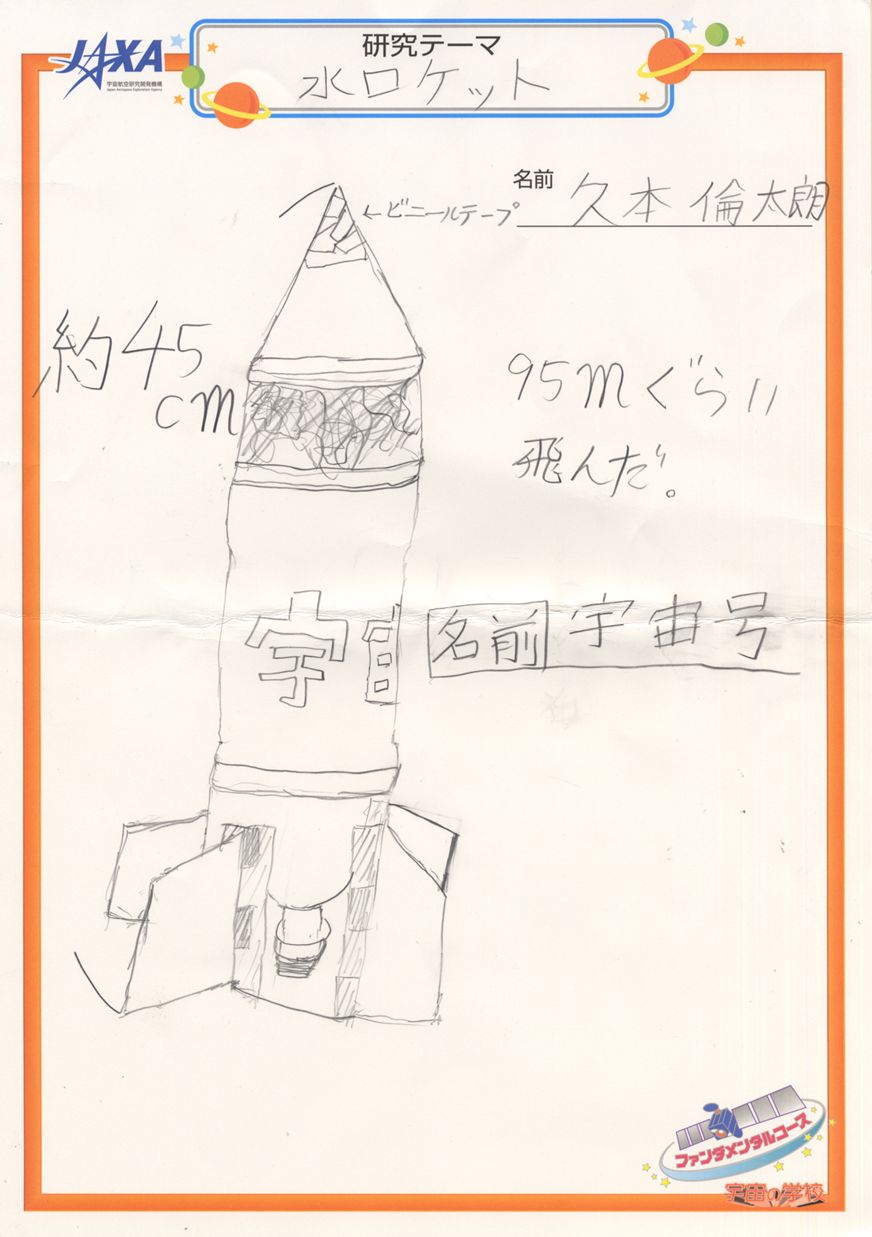 JAXA
宇宙航空研究開発機構
Japan Aerospace Exploration Agency
研究テーマ
水ロケット
名前 久本 倫太朗
←ビニールテープ
約45
cm
95mぐらい
飛んだ。
宇宙
名前 宇宙号
ファンダメンタルコース
宇宙の学校